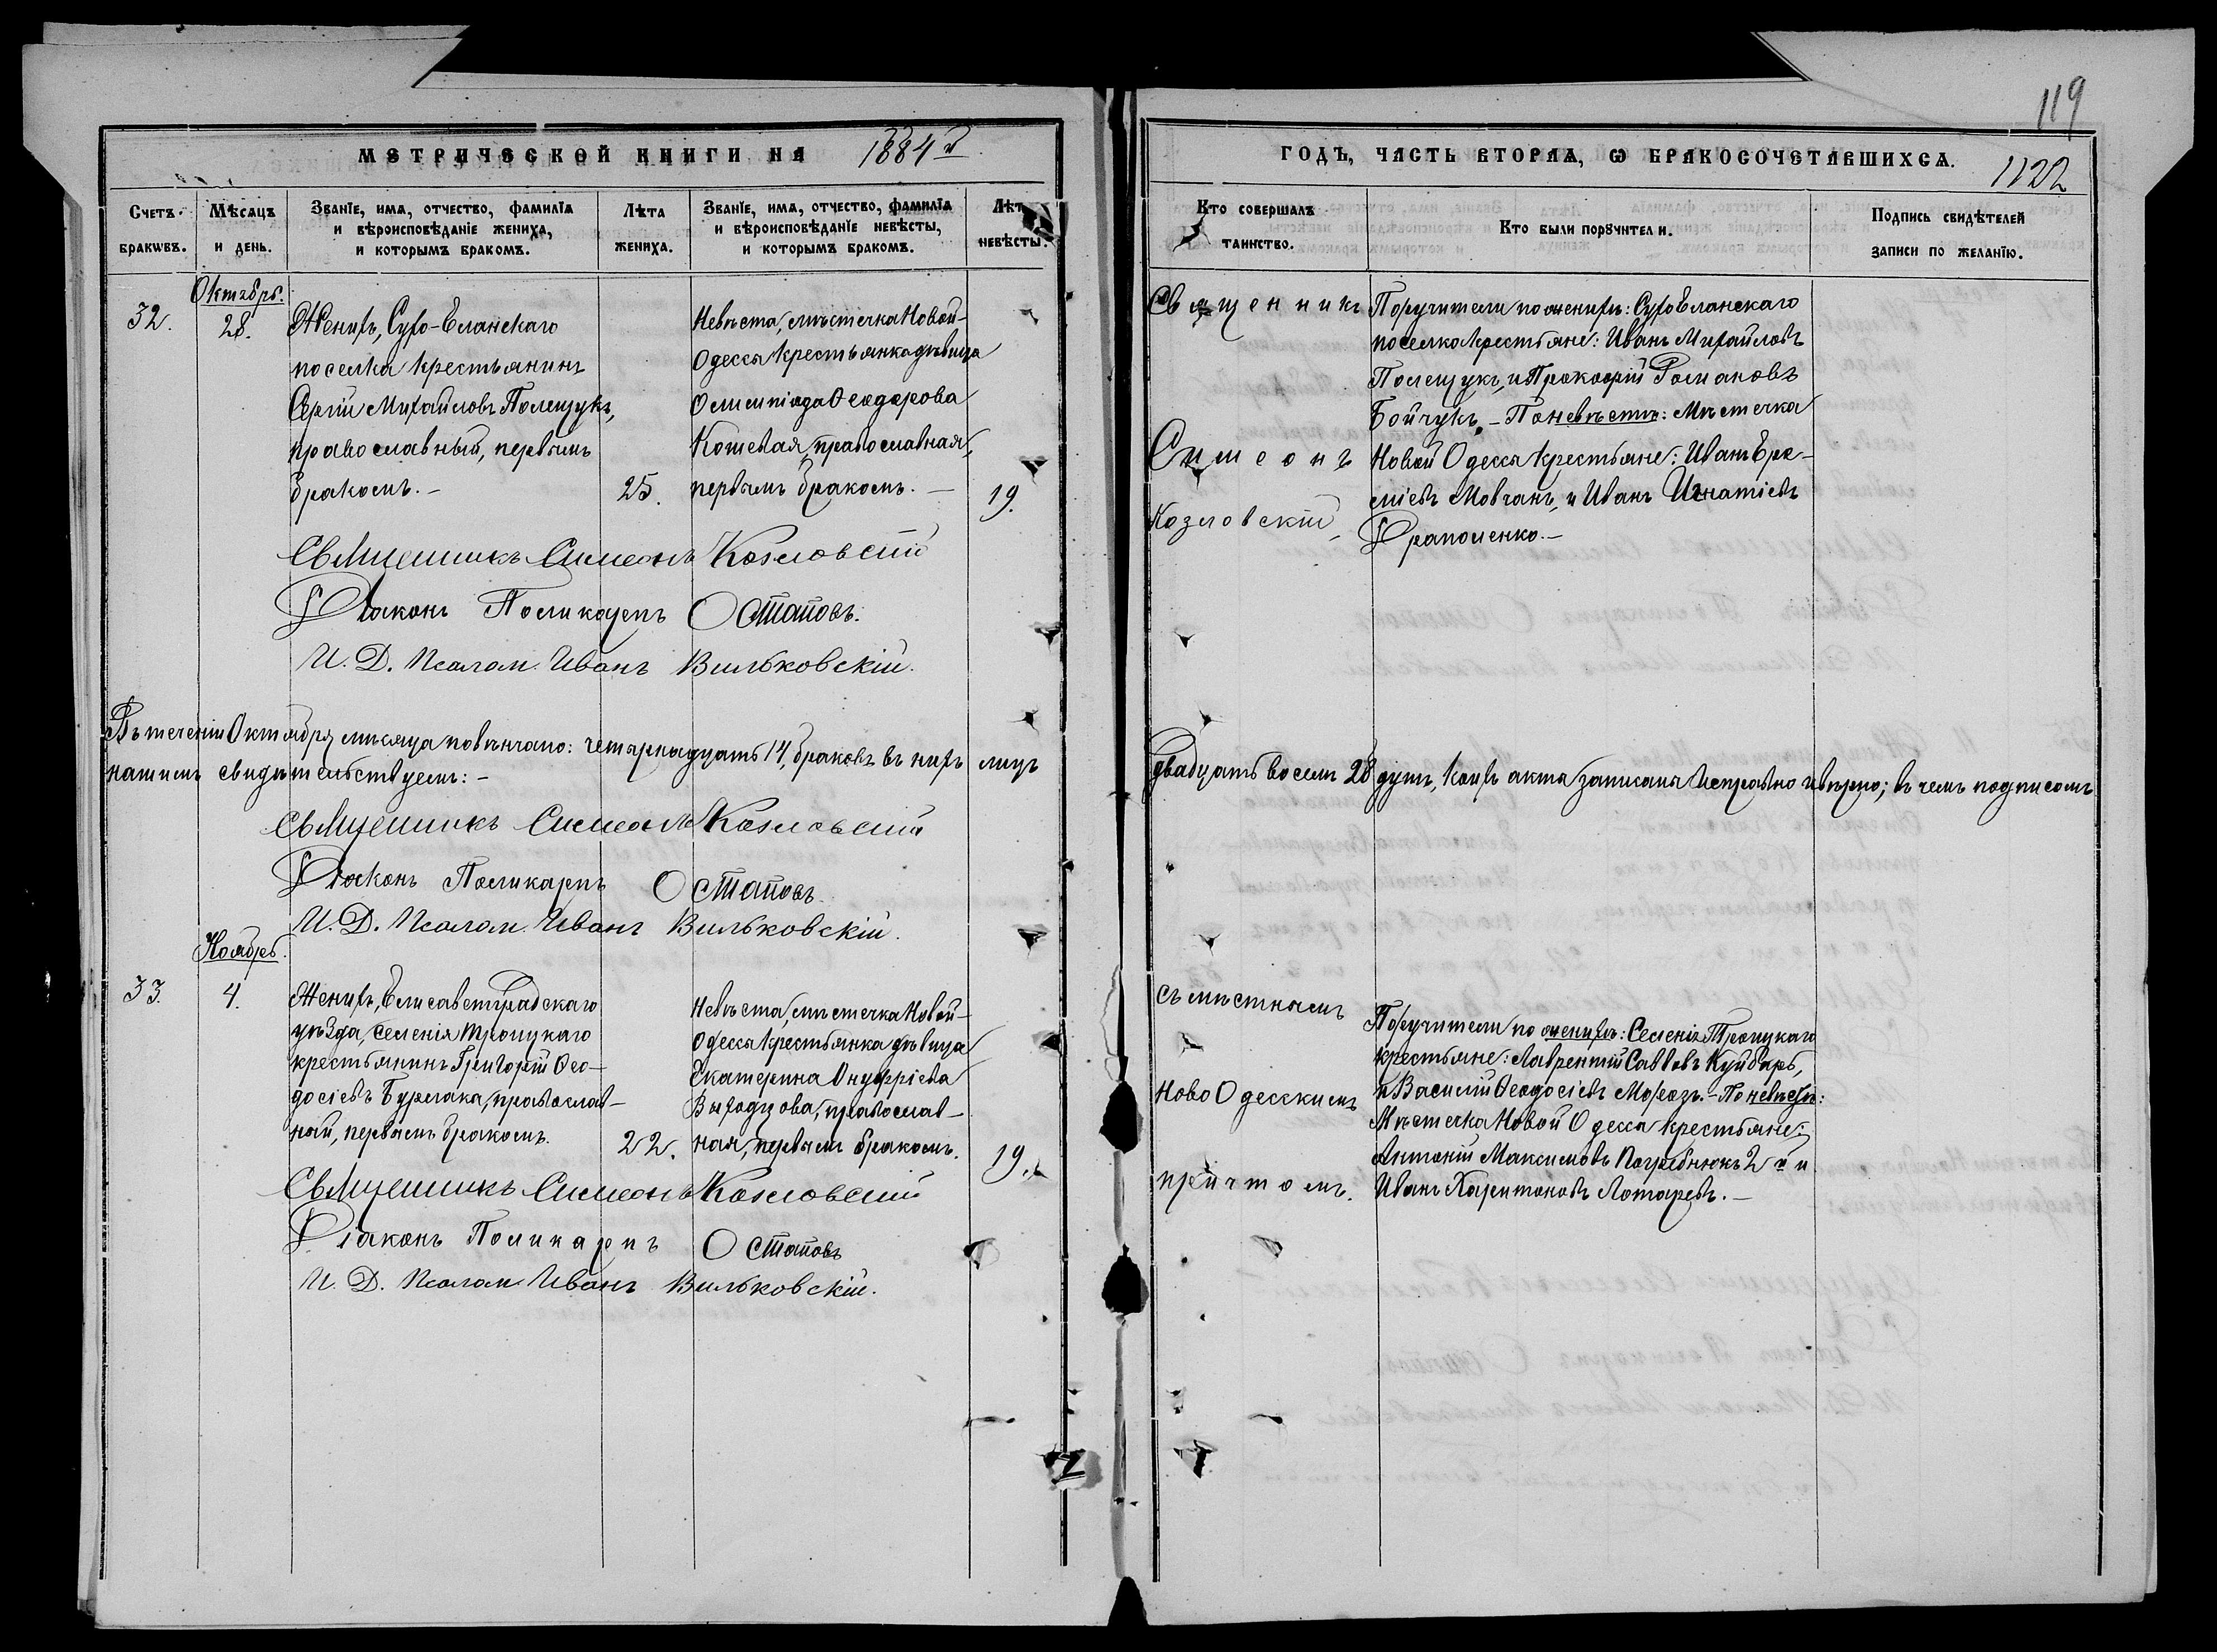 119
МЕТРИЧЕСКОЙ КНИГИ НА 1884й
ГОДЪ, ЧАСТЬ ВТОРАЯ, Ѡ БРАКОСОЧЕТАВШИХСѦ.
1122
Счетъ браковъ.
Мѣсяцъ и день.
Званіе, имя, отчество, фамилія
и вѣроисповѣданіе жениха,
и которымъ бракомъ.
Лѣта жениха.
Званіе, имя, отчество, фамилія
и вѣроисповѣданіе невѣсты,
и которымъ бракомъ.
Лѣта невѣсты.
Кто совершалъ таинство.
Кто были поручители.
Подпись свидѣтелей
записи по желанію.
Октябрь.
32.
28.
Женихъ, Сухо-Еланскаго
поселка крестьянинъ
Сергій Михайловъ Полещукъ,
православный, первымъ
бракомъ.-
25.
Невѣста, мѣстечка Новой-
Одессы крестьянка дѣвица
Олимпіада Ѳеодорова
Кошевая, православная,
первымъ бракомъ. -
19.
Священникъ
Симеонъ
Козловскій
Поручители по женихѣ: СухоЕланскаго
поселка крестьяне: Иванъ Михайловъ
Полещукъ, и Прокофій Романовъ
Бойчукъ. - По невѣстѣ: Мѣстечка
Новой Одессы крестьяне: Иванъ Ере-
міевъ Мовчанъ, и Иванъ Игнатіевъ
Драполенко.-
Священникъ Симеонъ Козловскій
Діаконъ Поликарпъ Остаповъ.
И. Д. Псалом. Иванъ Вильковскій.
Въ теченіи Октября мѣсяца повѣнчано: четырнадцать 14, браковъ въ нихъ лицъ двадцать восемь 28 душъ, коихъ акты записаны исправно и вѣрно; въ чемъ подписомъ
нашимъ свидѣтельствуемъ: -
Священникъ Симеонъ Козловскій
Діаконъ Поликарпъ Остаповъ.
И. Д. Псалом. Иванъ Вильковскій.
Ноябрь.
33.
4.
Женихъ, Елисаветградскаго
уѣзда, селенія Троицкаго
крестьянинъ Григорій Ѳео-
досіевъ Бурлака, православ-
ный, первымъ бракомъ.
22.
Невѣста, мѣстечка Новой-
Одессы крестьянка дѣвица
Екатерина Онуфріева
Выходцова, православ-
ная, первымъ бракомъ.
19.
Съ мѣстнымъ
НовоОдесскимъ
причтомъ.
Поручители по женихѣ: Селенія Троицкаго
крестьяне: Лаврентій Саввовъ Куйбаръ,
и Василій Ѳеодосіевъ Морозъ.-По невѣстѣ:
Мѣстечка Новой Одессы крестьяне:
Антоній Максимовъ Погребнюкъ 2й и
Иванъ Харитоновъ Лотаревъ.-
Священникъ Симеонъ Козловскій
Діаконъ Поликарпъ Остаповъ
И. Д. Псалом. Иванъ Вильковскій.